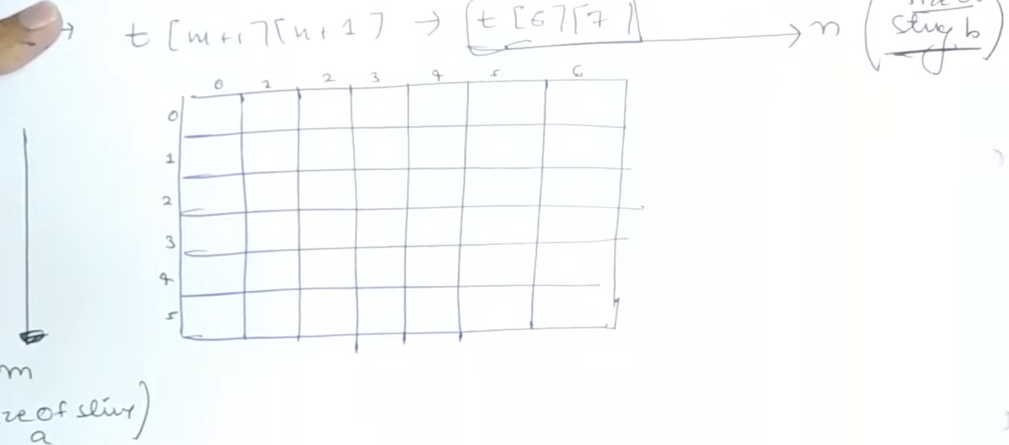 → t [m+1][n+1] → t [6][7] → n (size of
string b)
0 1 2 3 4 5 6
0
1
2
3
4
5
m
ze of string)
a